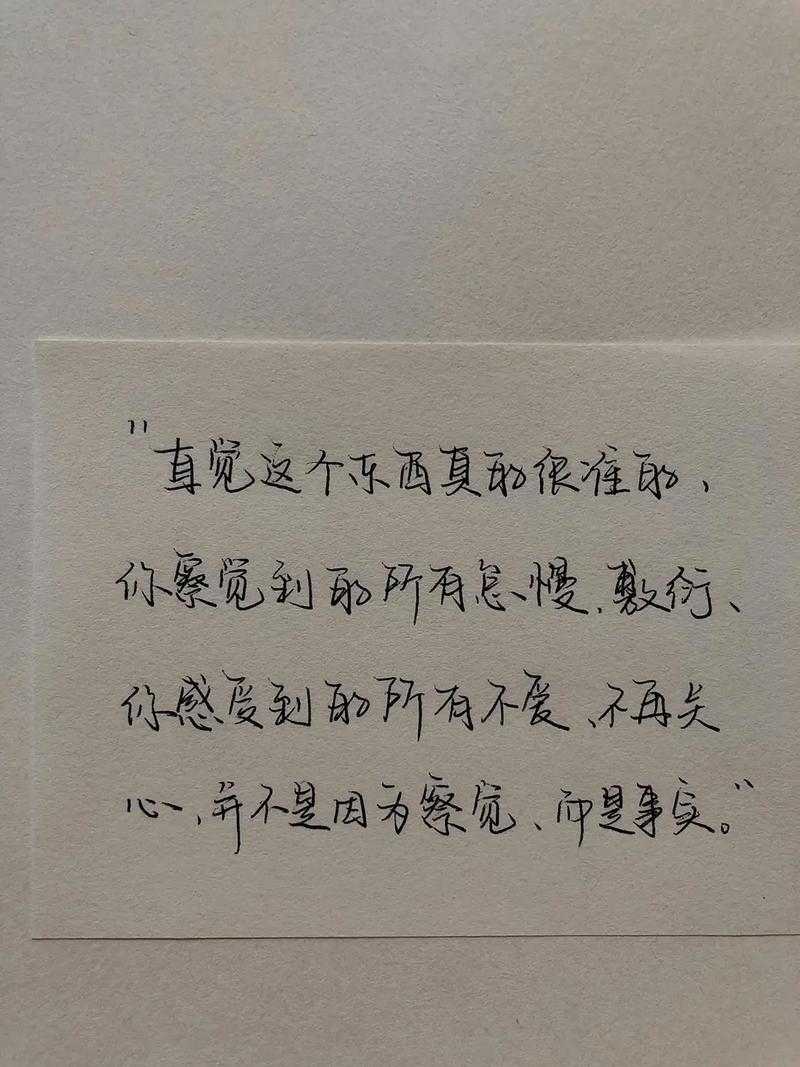 "直觉这个东西真的很准的,
你察觉到的所有怠慢、敷衍、
你感受到的所有不爱、不再关
心,并不是因为察觉、而是事实。"